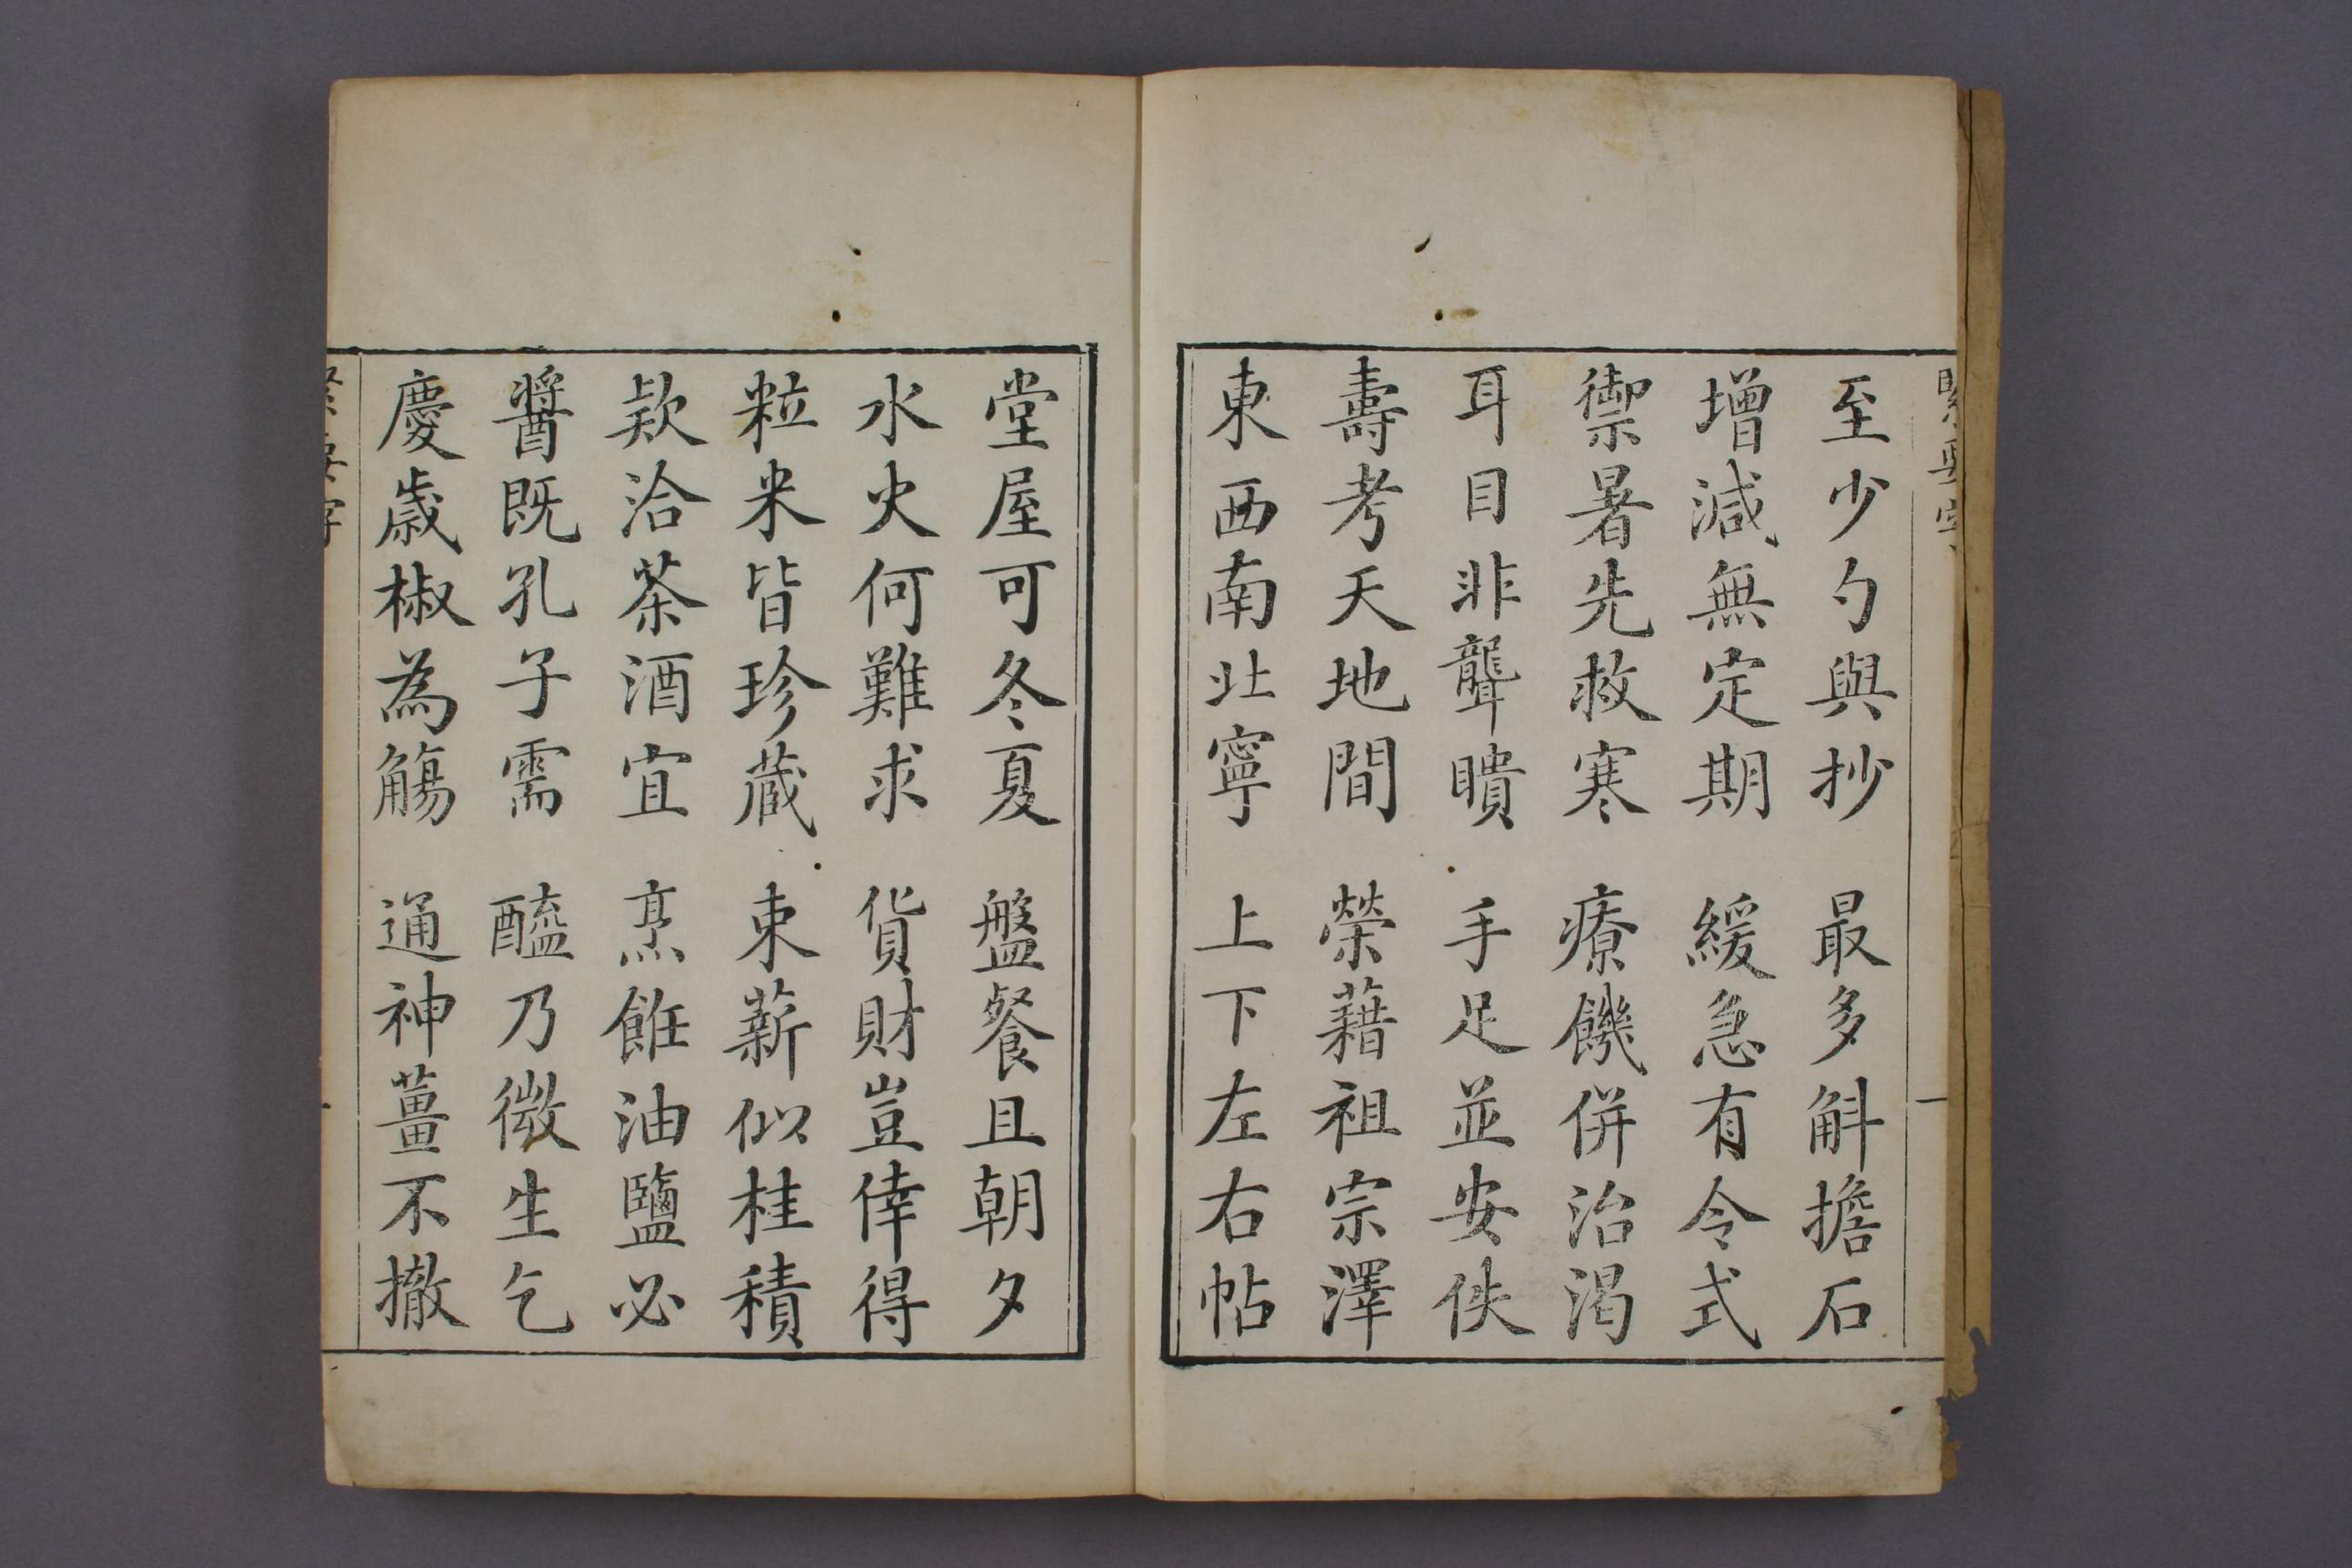 至少勺與抄　最多斛擔石
增減無定期　緩急有令式
禦暑先救寒　療饑併治渴
耳目非聾瞶　手足並安佚
壽考天地間　榮藉祖宗澤
東西南北寧　上下左右帖
堂屋可冬夏　盤餐且朝夕
水火何難求　貨財豈倖得
粒米皆珍蔵　束薪似桂積
欵洽茶酒宜　烹飪油鹽必
醬既孔子需　醯乃微生乞
慶歲椒為觴　通神薑不撤